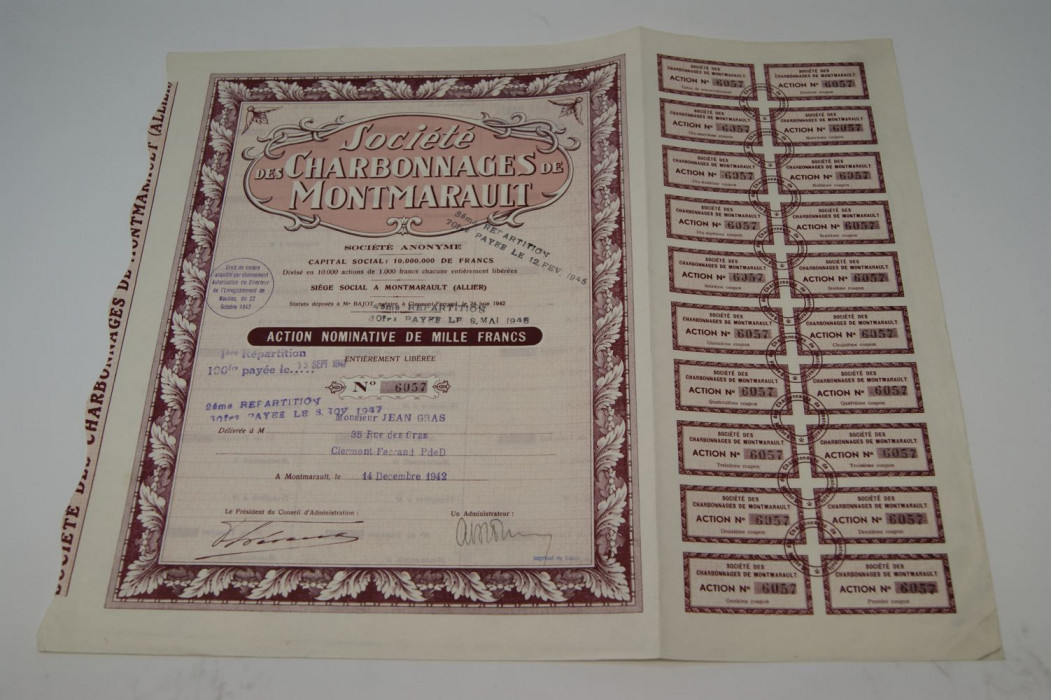 SOCIÉTÉ DES CHARBONNAGES DE MONTMARAULT (ALLIER)
Société
DES CHARBONNAGES DE
MONTMARAULT
SOCIÉTÉ ANONYME
CAPITAL SOCIAL: 10.000.000 DE FRANCS
Divisé en 10.000 actions de 1.000 francs chacune entièrement libérées
SIÈGE SOCIAL A MONTMARAULT (ALLIER)
Statuts déposés à Me BAJOT, notaire à Clermont-Ferrand, le 24 juin 1942
3ème REPARTITION
PAYEE LE 12 FEV 1948
REPARTITION
PAYEE LE 8 MAI 1948
Droit de timbre
acquitté par abonnement
Autorisation du Directeur
de l'Enregistrement de
Moulins, du 22
Octobre 1942
ACTION NOMINATIVE DE MILLE FRANCS
ENTIÈREMENT LIBÉRÉE
1ère Répartition
payée le.....
No 6057
2ème REPARTITION
PAYEE LE 8 NOV 1947
Délivrée à M
Monsieur JEAN GRAS
35 Rue des Gras
Clermont-Ferrand PdeD
A Montmarault, le 14 Decembre 1942
Le Président du Conseil d'Administration:
Un Administrateur:
SOCIÉTÉ DES
CHARBONNAGES DE MONTMARAULT
ACTION No 6057
SOCIÉTÉ DES
CHARBONNAGES DE MONTMARAULT
ACTION No 6057
SOCIÉTÉ DES
CHARBONNAGES DE MONTMARAULT
ACTION No 6057
SOCIÉTÉ DES
CHARBONNAGES DE MONTMARAULT
ACTION No 6057
SOCIÉTÉ DES
CHARBONNAGES DE MONTMARAULT
ACTION No 6057
SOCIÉTÉ DES
CHARBONNAGES DE MONTMARAULT
ACTION No 6057
SOCIÉTÉ DES
CHARBONNAGES DE MONTMARAULT
ACTION No 6057
SOCIÉTÉ DES
CHARBONNAGES DE MONTMARAULT
ACTION No 6057
SOCIÉTÉ DES
CHARBONNAGES DE MONTMARAULT
ACTION No 6057
SOCIÉTÉ DES
CHARBONNAGES DE MONTMARAULT
ACTION No 6057
Sixième coupon
SOCIÉTÉ DES
CHARBONNAGES DE MONTMARAULT
ACTION No 6057
Quinzième coupon
SOCIÉTÉ DES
CHARBONNAGES DE MONTMARAULT
ACTION No 6057
Cinquième coupon
SOCIÉTÉ DES
CHARBONNAGES DE MONTMARAULT
ACTION No 6057
Quatorzième coupon
SOCIÉTÉ DES
CHARBONNAGES DE MONTMARAULT
ACTION No 6057
Quatrième coupon
SOCIÉTÉ DES
CHARBONNAGES DE MONTMARAULT
ACTION No 6057
Treizième coupon
SOCIÉTÉ DES
CHARBONNAGES DE MONTMARAULT
ACTION No 6057
Troisième coupon
SOCIÉTÉ DES
CHARBONNAGES DE MONTMARAULT
ACTION No 6057
Douzième coupon
SOCIÉTÉ DES
CHARBONNAGES DE MONTMARAULT
ACTION No 6057
Deuxième coupon
SOCIÉTÉ DES
CHARBONNAGES DE MONTMARAULT
ACTION No 6057
Onzième coupon
SOCIÉTÉ DES
CHARBONNAGES DE MONTMARAULT
ACTION No 6057
Premier coupon